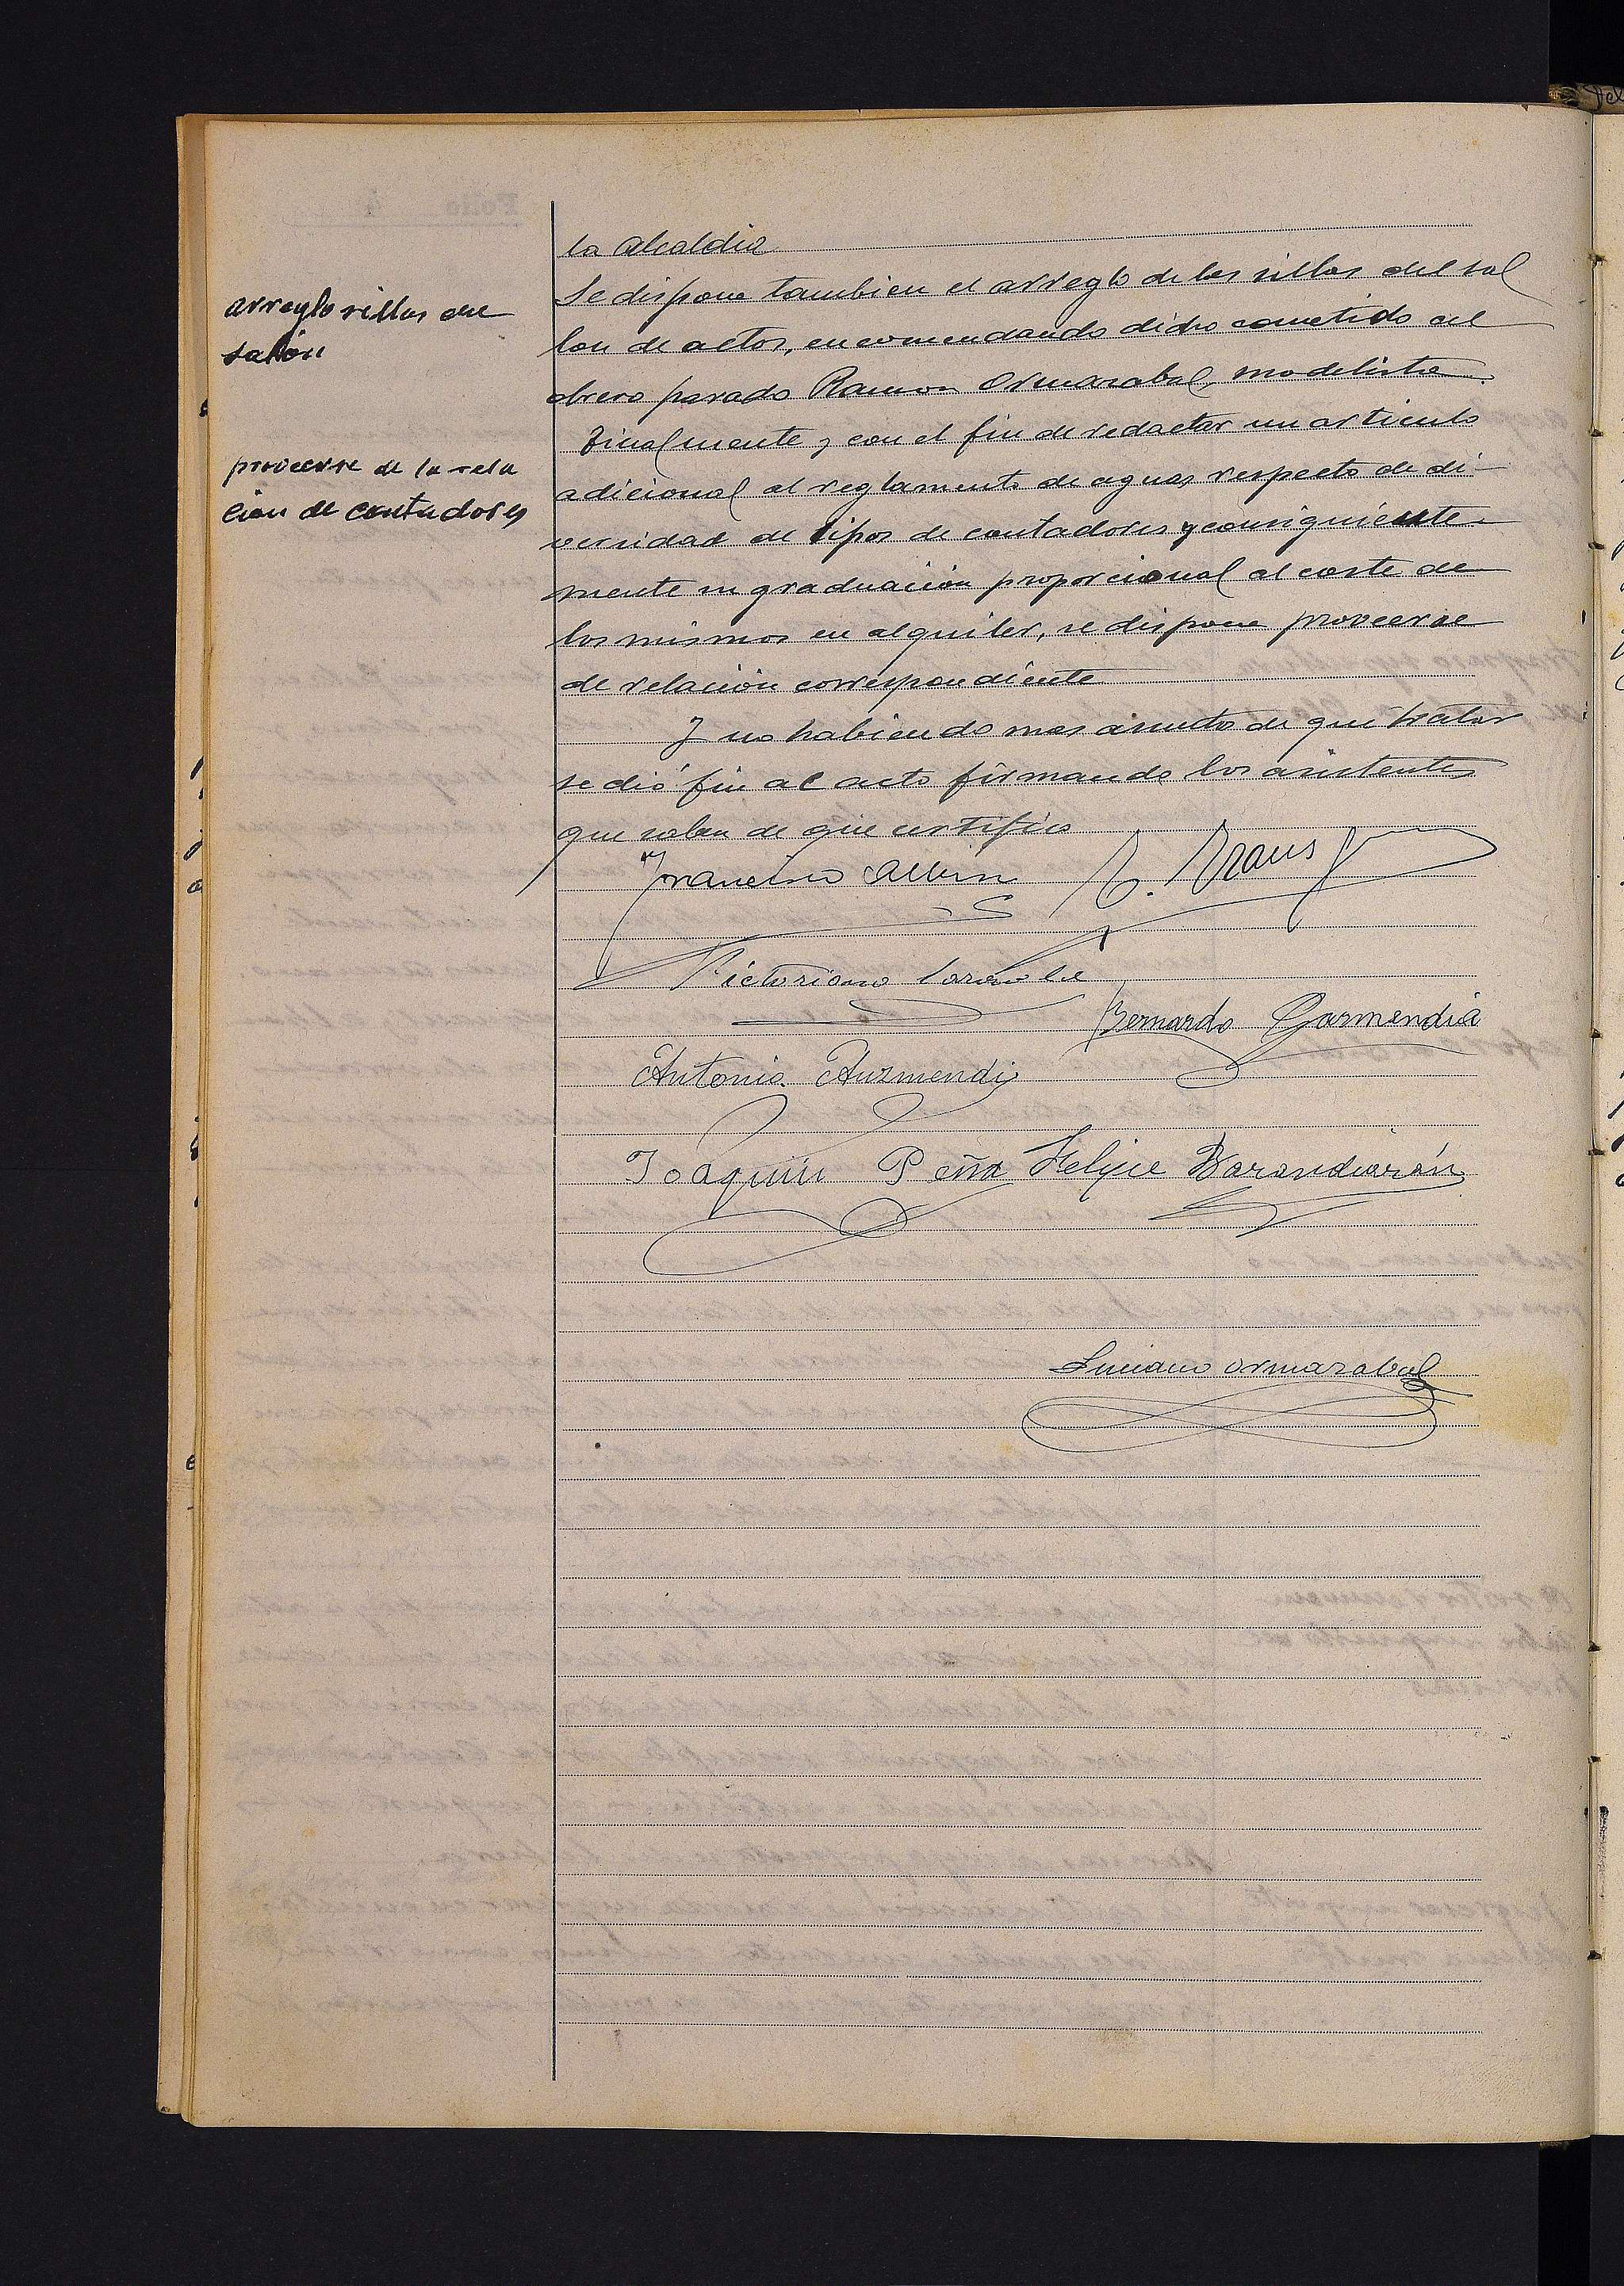 la Alcaldia
arreglo sillas del
salón
Se dispone tambien el arreglo de las sillas del sal
lon de actos, encomendando dicho cometido al
obrero parado Ramon Ormazabal, modelista.
proveerse de la rela
ción de contadores
Finalmente y con el fin de redactar un articulo
adicional al reglamento de aguas respecto de di-
versidad de tipos de contadores y consiguiente-
mente su graduación proporcional al coste de
los mismos en alquiler, se dispone proveerse
de relación correspondiente
Y no habiendo mas asuntos de que tratar
se dió fin al acto firmando los asistentes
que saben de que certifico
Francisco
Victoriano
Bernardo Garmendia
Antonio Auzmendi
Joaquin Peña Felipe Barandiarán
Luciano Ormazabal